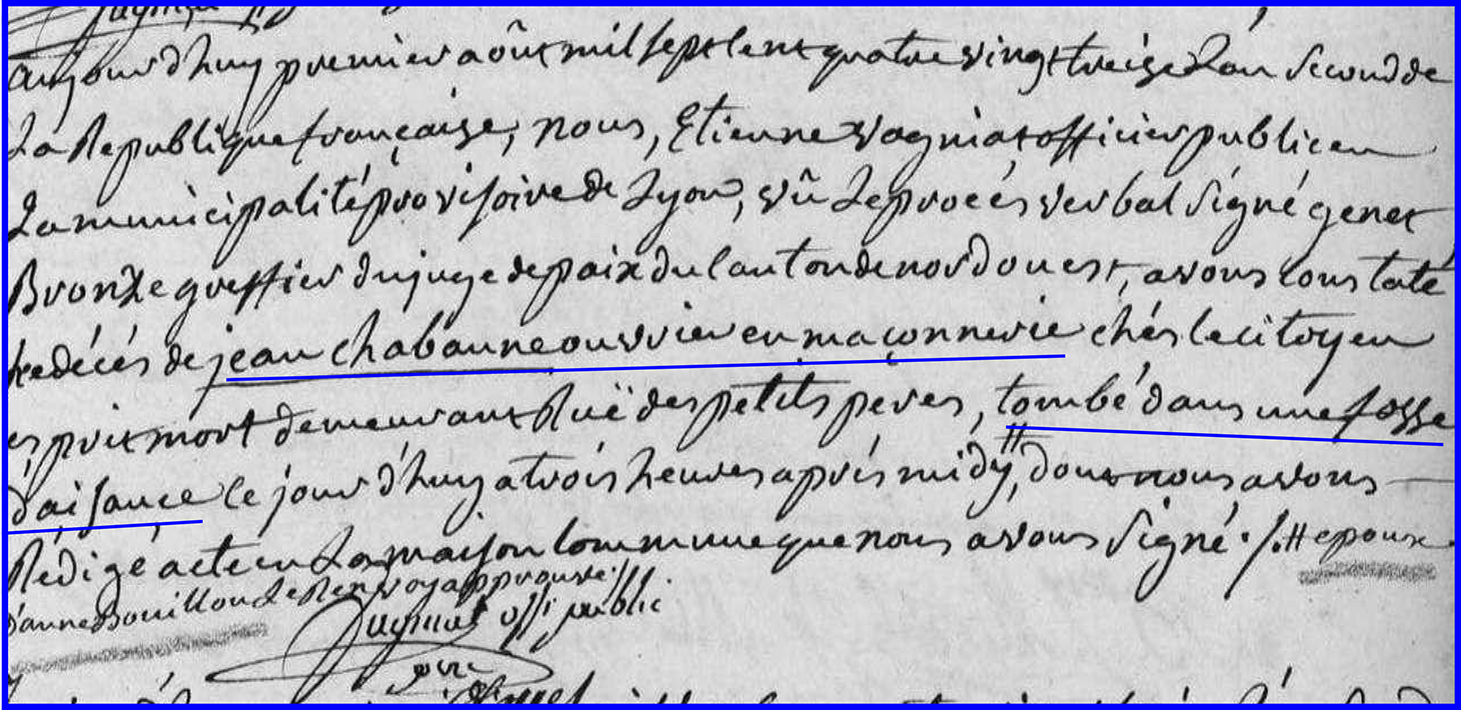 aujourd'huy premier août mil sept cent quatre vingt treize L'an Second de
La Republique françaize, nous, Etienne Vagniat officier public en
La municipalité provisoire de Lyon, vû Le procés verbal Signé genet
Bronze greffier du juge de paix du Canton de nord ouest, avons Constaté
Le décés de jean chabanne ouvrier en maçonnerie chés le citoyen
esprit mort demeurant Ruë des petits peres, tombé dans une fosse
d'aisance Ce jour d'huy a trois heures aprés midy, # dont nous avons
Rédigé acte en La maison Commune que nous avons Signé ·/. # epoux
d'anne Bouillon Le Renvoy approuvé ·/.
Vagniat offi public
pere